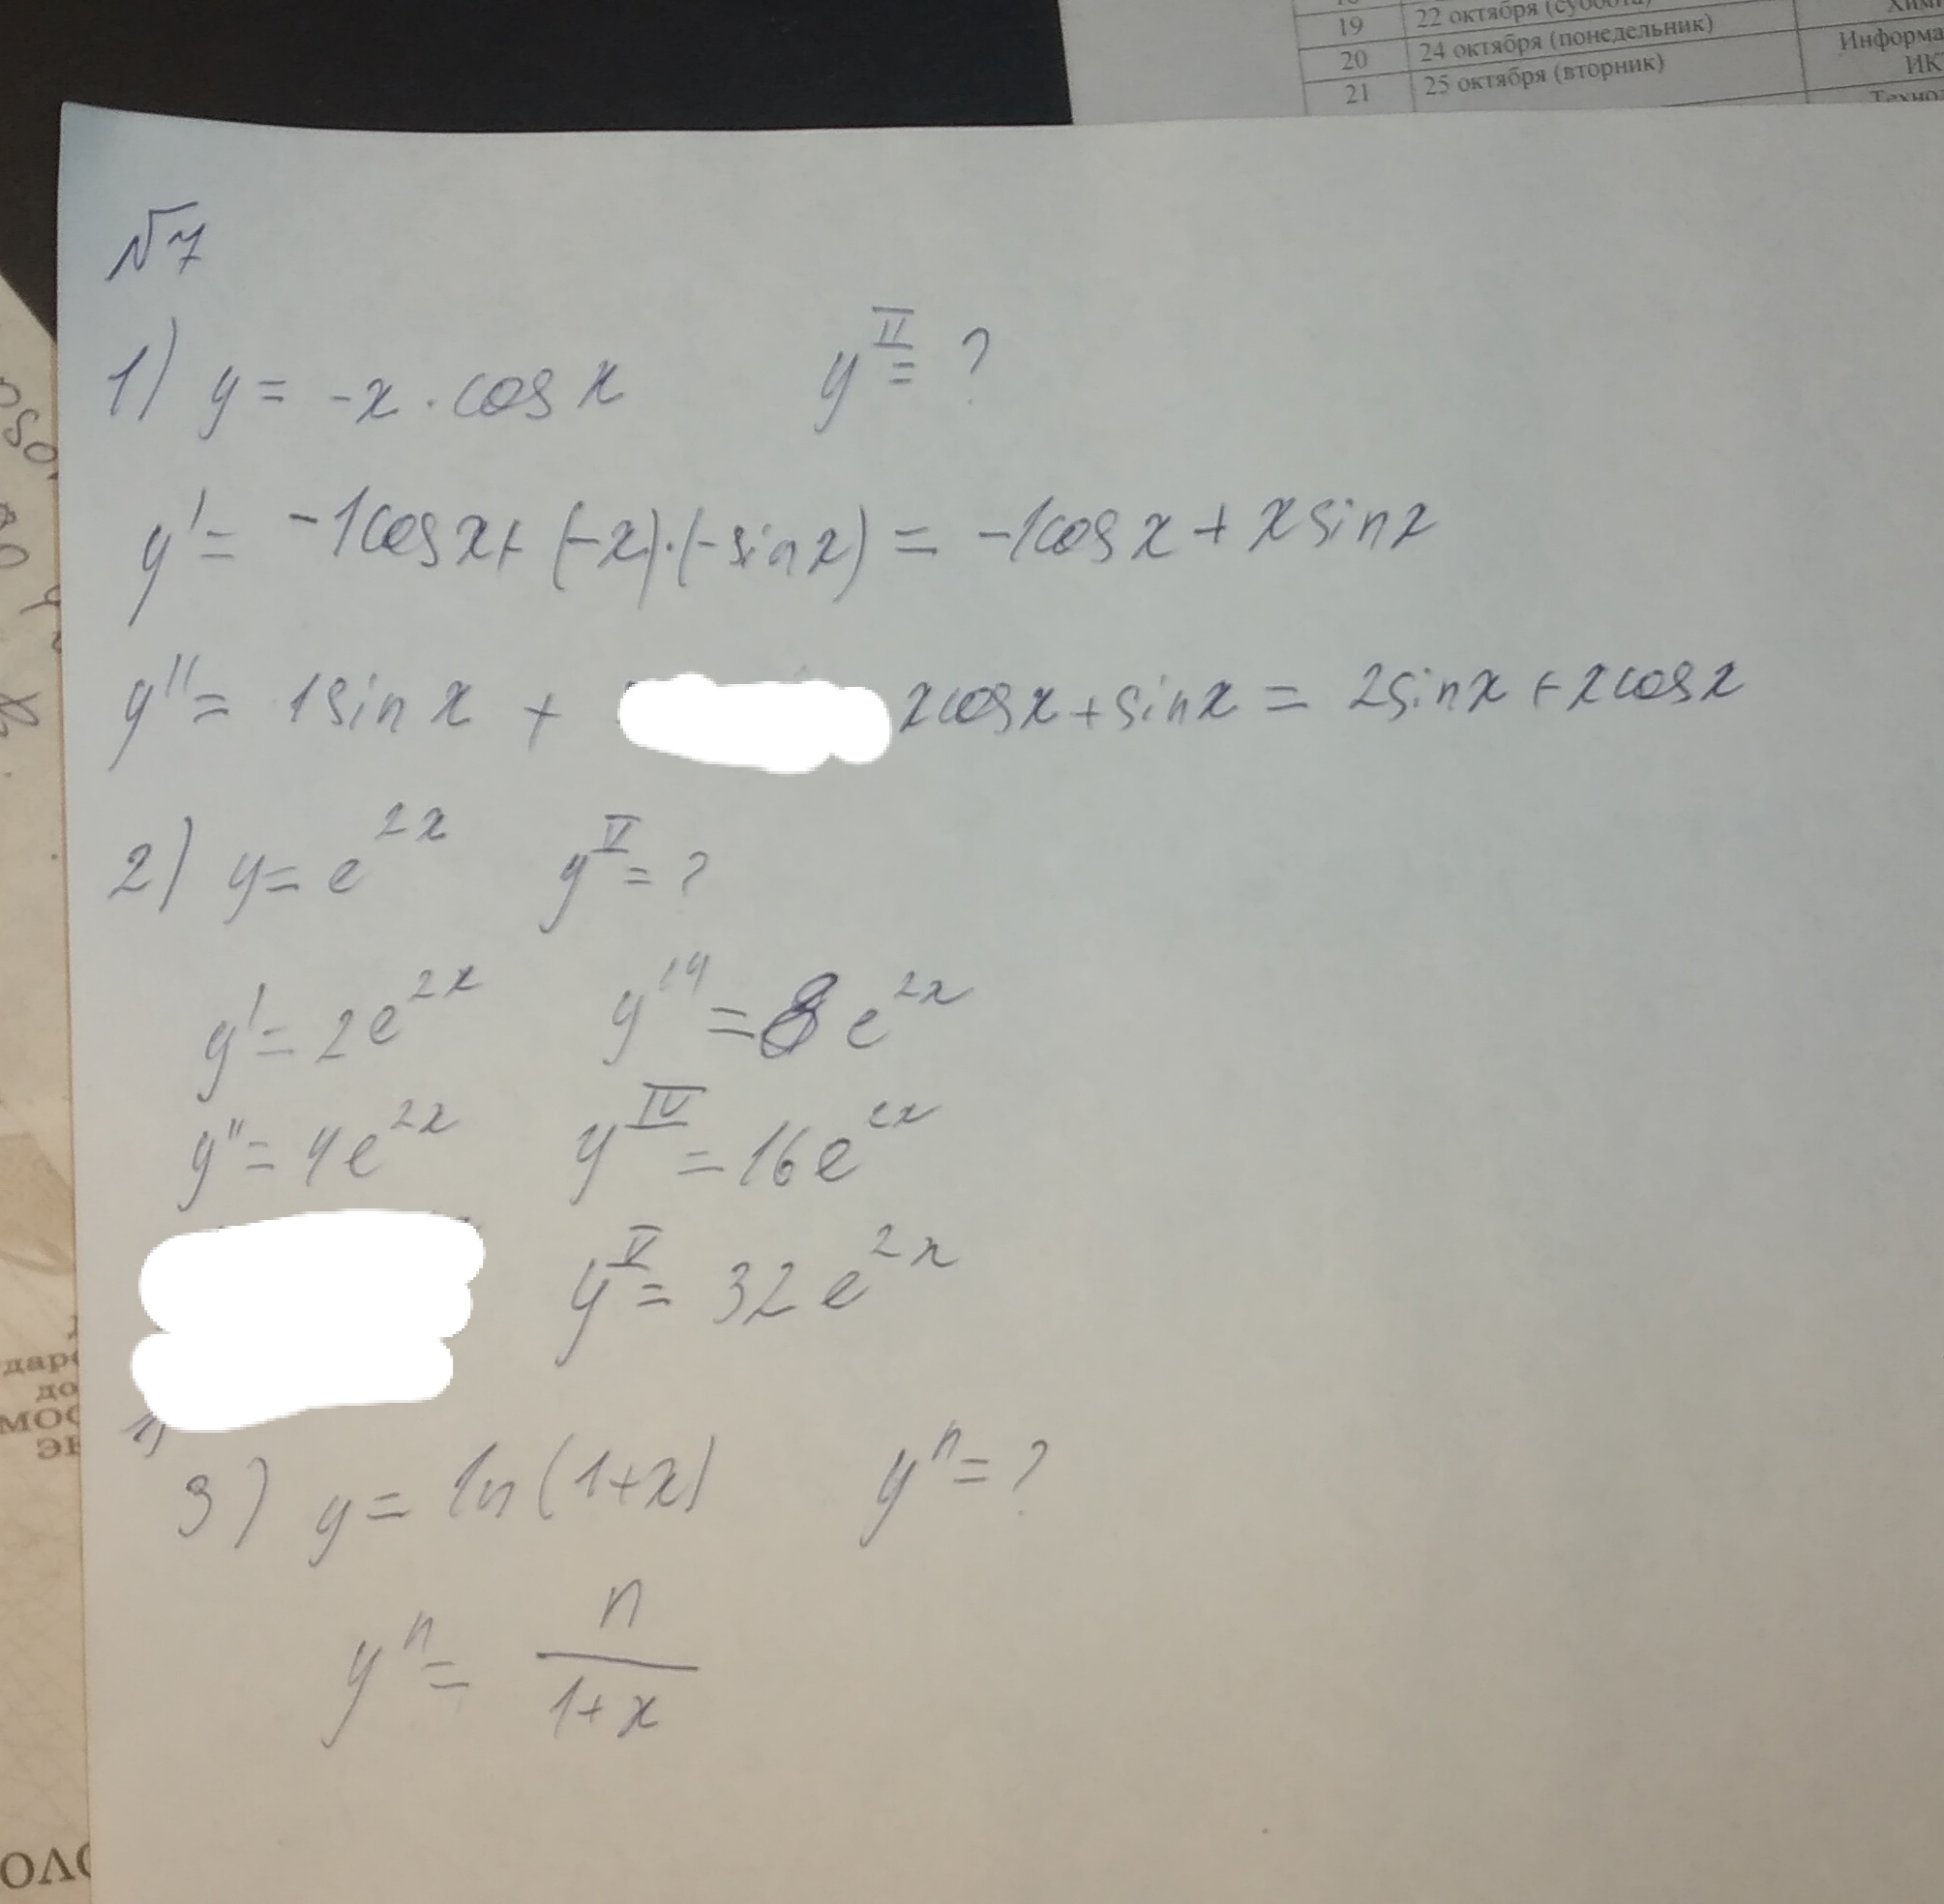 19 22 октября (суббота)
20 24 октября (понедельник) Информа
21 25 октября (вторник) ИК
Техно
№7
1) y = -x · cos x y^II = ?
y' = -1cos x + (-x)·(-sin x) = -1cos x + x sin x
y'' = 1sin x + x cos x + sin x = 2sin x + x cos x
2) y = e^2x y^V = ?
y' = 2e^2x y''' = 8e^2x
y'' = 4e^2x y^IV = 16e^2x
y^V = 32e^2x
3) y = ln(1+x) y^n = ?
y^n = n/(1+x)
дар
до
МОС
ОЛО